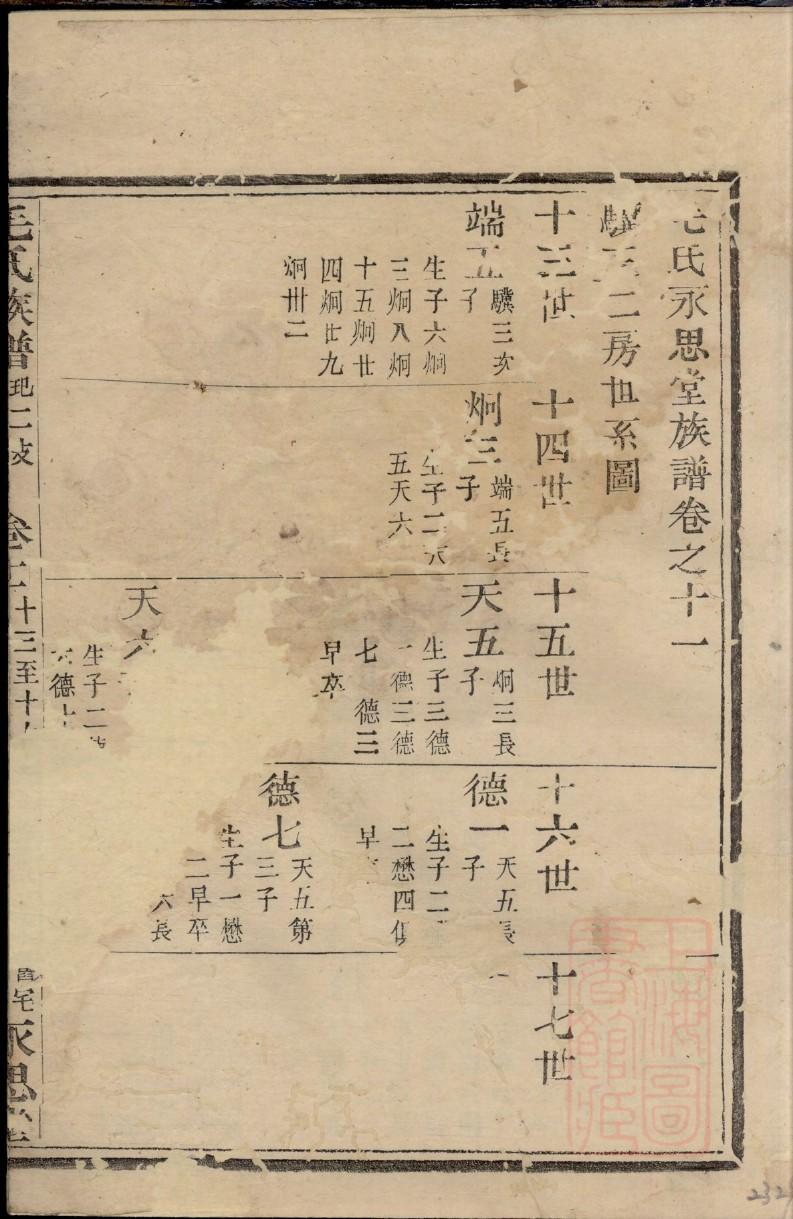 毛氏永思堂族譜卷之十一
二房世系圖
十三世
端五
驥三次
子
生子六炯
三炯八炯
十五炯廿
四炯廿九
炯卅二
十四世
炯三
端五長
子
生子二天
五天六
十五世
天五
炯三長
子
生子三德
一德三德
七 德三
早卒
天六
生子二
德十
十六世
德一
天五長
子
生子二
二懋四
早
德七
天五第
三子
生子一懋
二早卒
六長
十七世
一
毛氏族譜
二支
十三至十
宅永思堂
上海圖書館藏
232